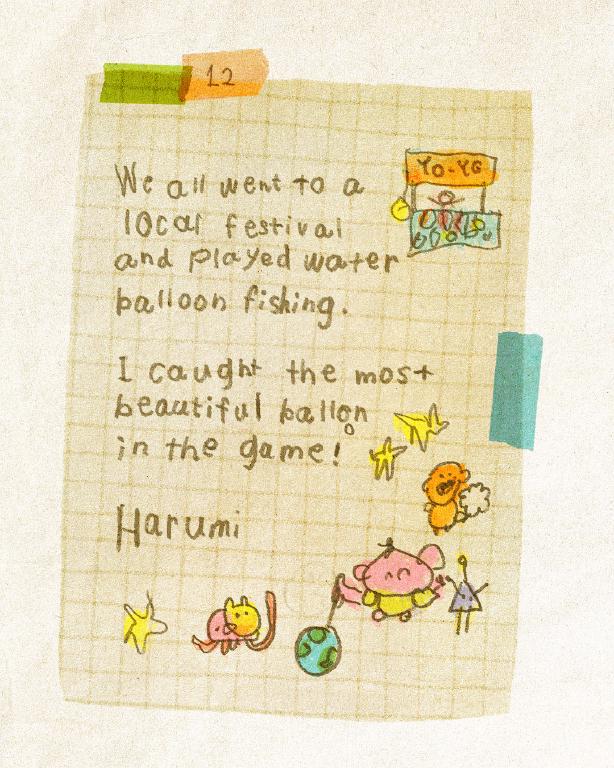 12
YO-YO
We all went to a
local festival
and played water
balloon fishing.
I caught the most
beautiful balloon
in the game!
Harumi